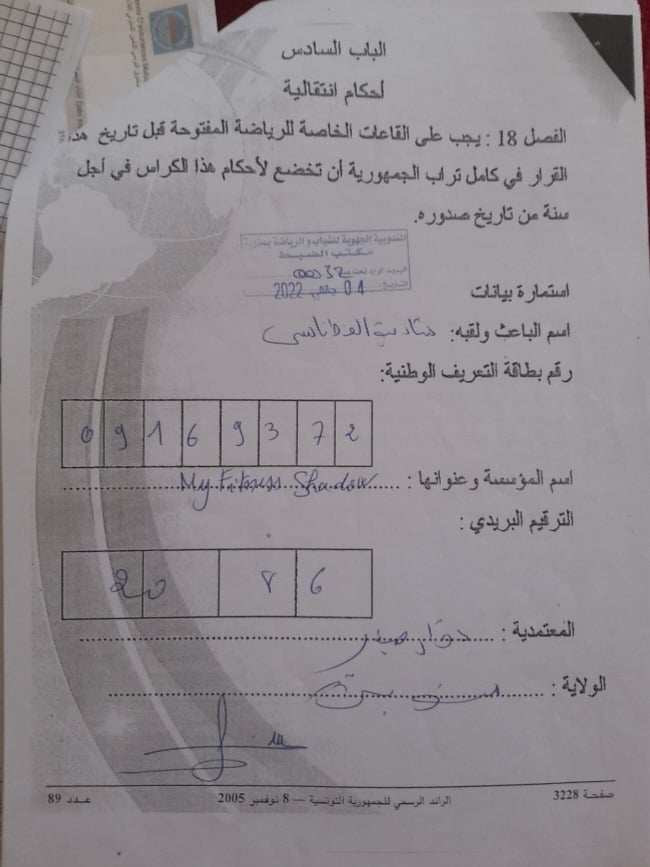 الباب السادس
أحكام انتقالية
الفصل 18 : يجب على القاعات الخاصة للرياضة المفتوحة قبل تاريخ هذا
القرار في كامل تراب الجمهورية أن تخضع لأحكام هذا الكراس في أجل
سنة من تاريخ صدوره.
المندوبية الجهوية للشباب والرياضة بمنوبة
مكتب الضبط
00032
04 جانفي 2022
استمارة بيانات
اسم الباعث ولقبه:
رقم بطاقة التعريف الوطنية:
0 9 1 6 9 3 7 2
اسم المؤسسة وعنوانها : My Fitness Shadow
الترقيم البريدي :
20 8 6
المعتمدية : دوار هيشر
الولاية : منوبة
صفحة 3228 الرائد الرسمي للجمهورية التونسية — 8 نوفمبر 2005 عـدد 89